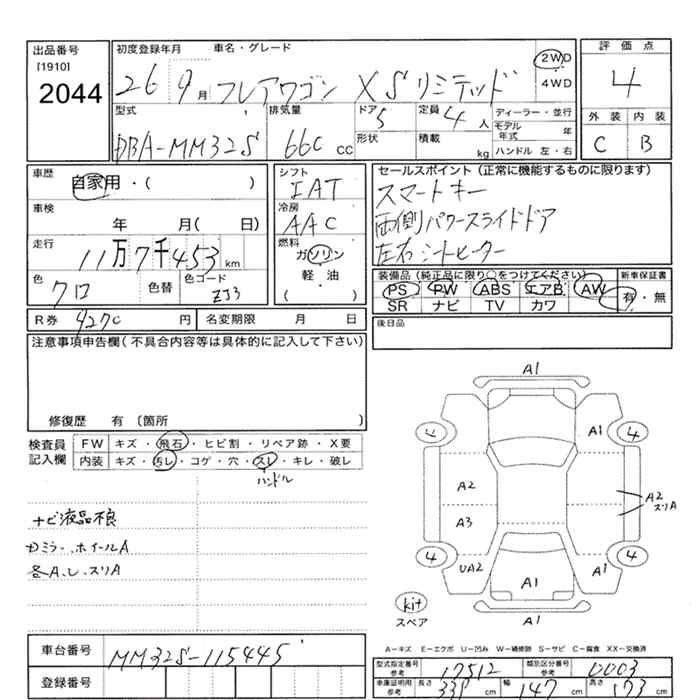 出品番号
[1910]
2044
初度登録年月 車名・グレード
26 9月 フレアワゴン XSリミテッド
2WD
4WD
評価点
4
外装 内装
C B
型式 排気量 ドア 定員 ディーラー・並行
DBA-MM32S 660 CC 5 4人
モデル年式 年
形状 積載 kg ハンドル 左・右
車歴
自家用・( )
車検
年 月( 日)
走行
11万7千453km
色 色替 色コード
クロ ZJ3
シフト
IAT
冷房
AAC
燃料
ガソリン
軽・油
( )
セールスポイント(正常に機能するものに限ります)
スマートキー
両側パワースライドドア
左右シートヒーター
装備品(純正品に限り○をつけてください) 新車保証書
PS PW ABS エアB AW 有・無
SR ナビ TV カワ
後日品
R券 9270 円 名変期限 月 日
注意事項申告欄(不具合内容等は具体的に記入して下さい)
修復歴 有 〔箇所 〕
検査員記入欄
FW キズ・飛石・ヒビ割・リペア跡・X要
内装 キズ・汚レ・コゲ・穴・スレ・キレ・破レ
ハンドル
ナビ液晶不良
Dミラー、ホイールA
各A、U、スリA
A1
A1
4 4
A2 A2
スリA
A3
4 4
UA2 A1 A1
kit
スペア
A1
A−キズ E−エクボ U−凹み W−補修跡 S−サビ C−腐食 XX−交換済
車台番号 MM32S-115445
登録番号
型式指定番号 参考 17512 類別区分番号 参考 0003
車庫証明用 参考 長さ 339 cm 幅 147 cm 高さ 173 cm